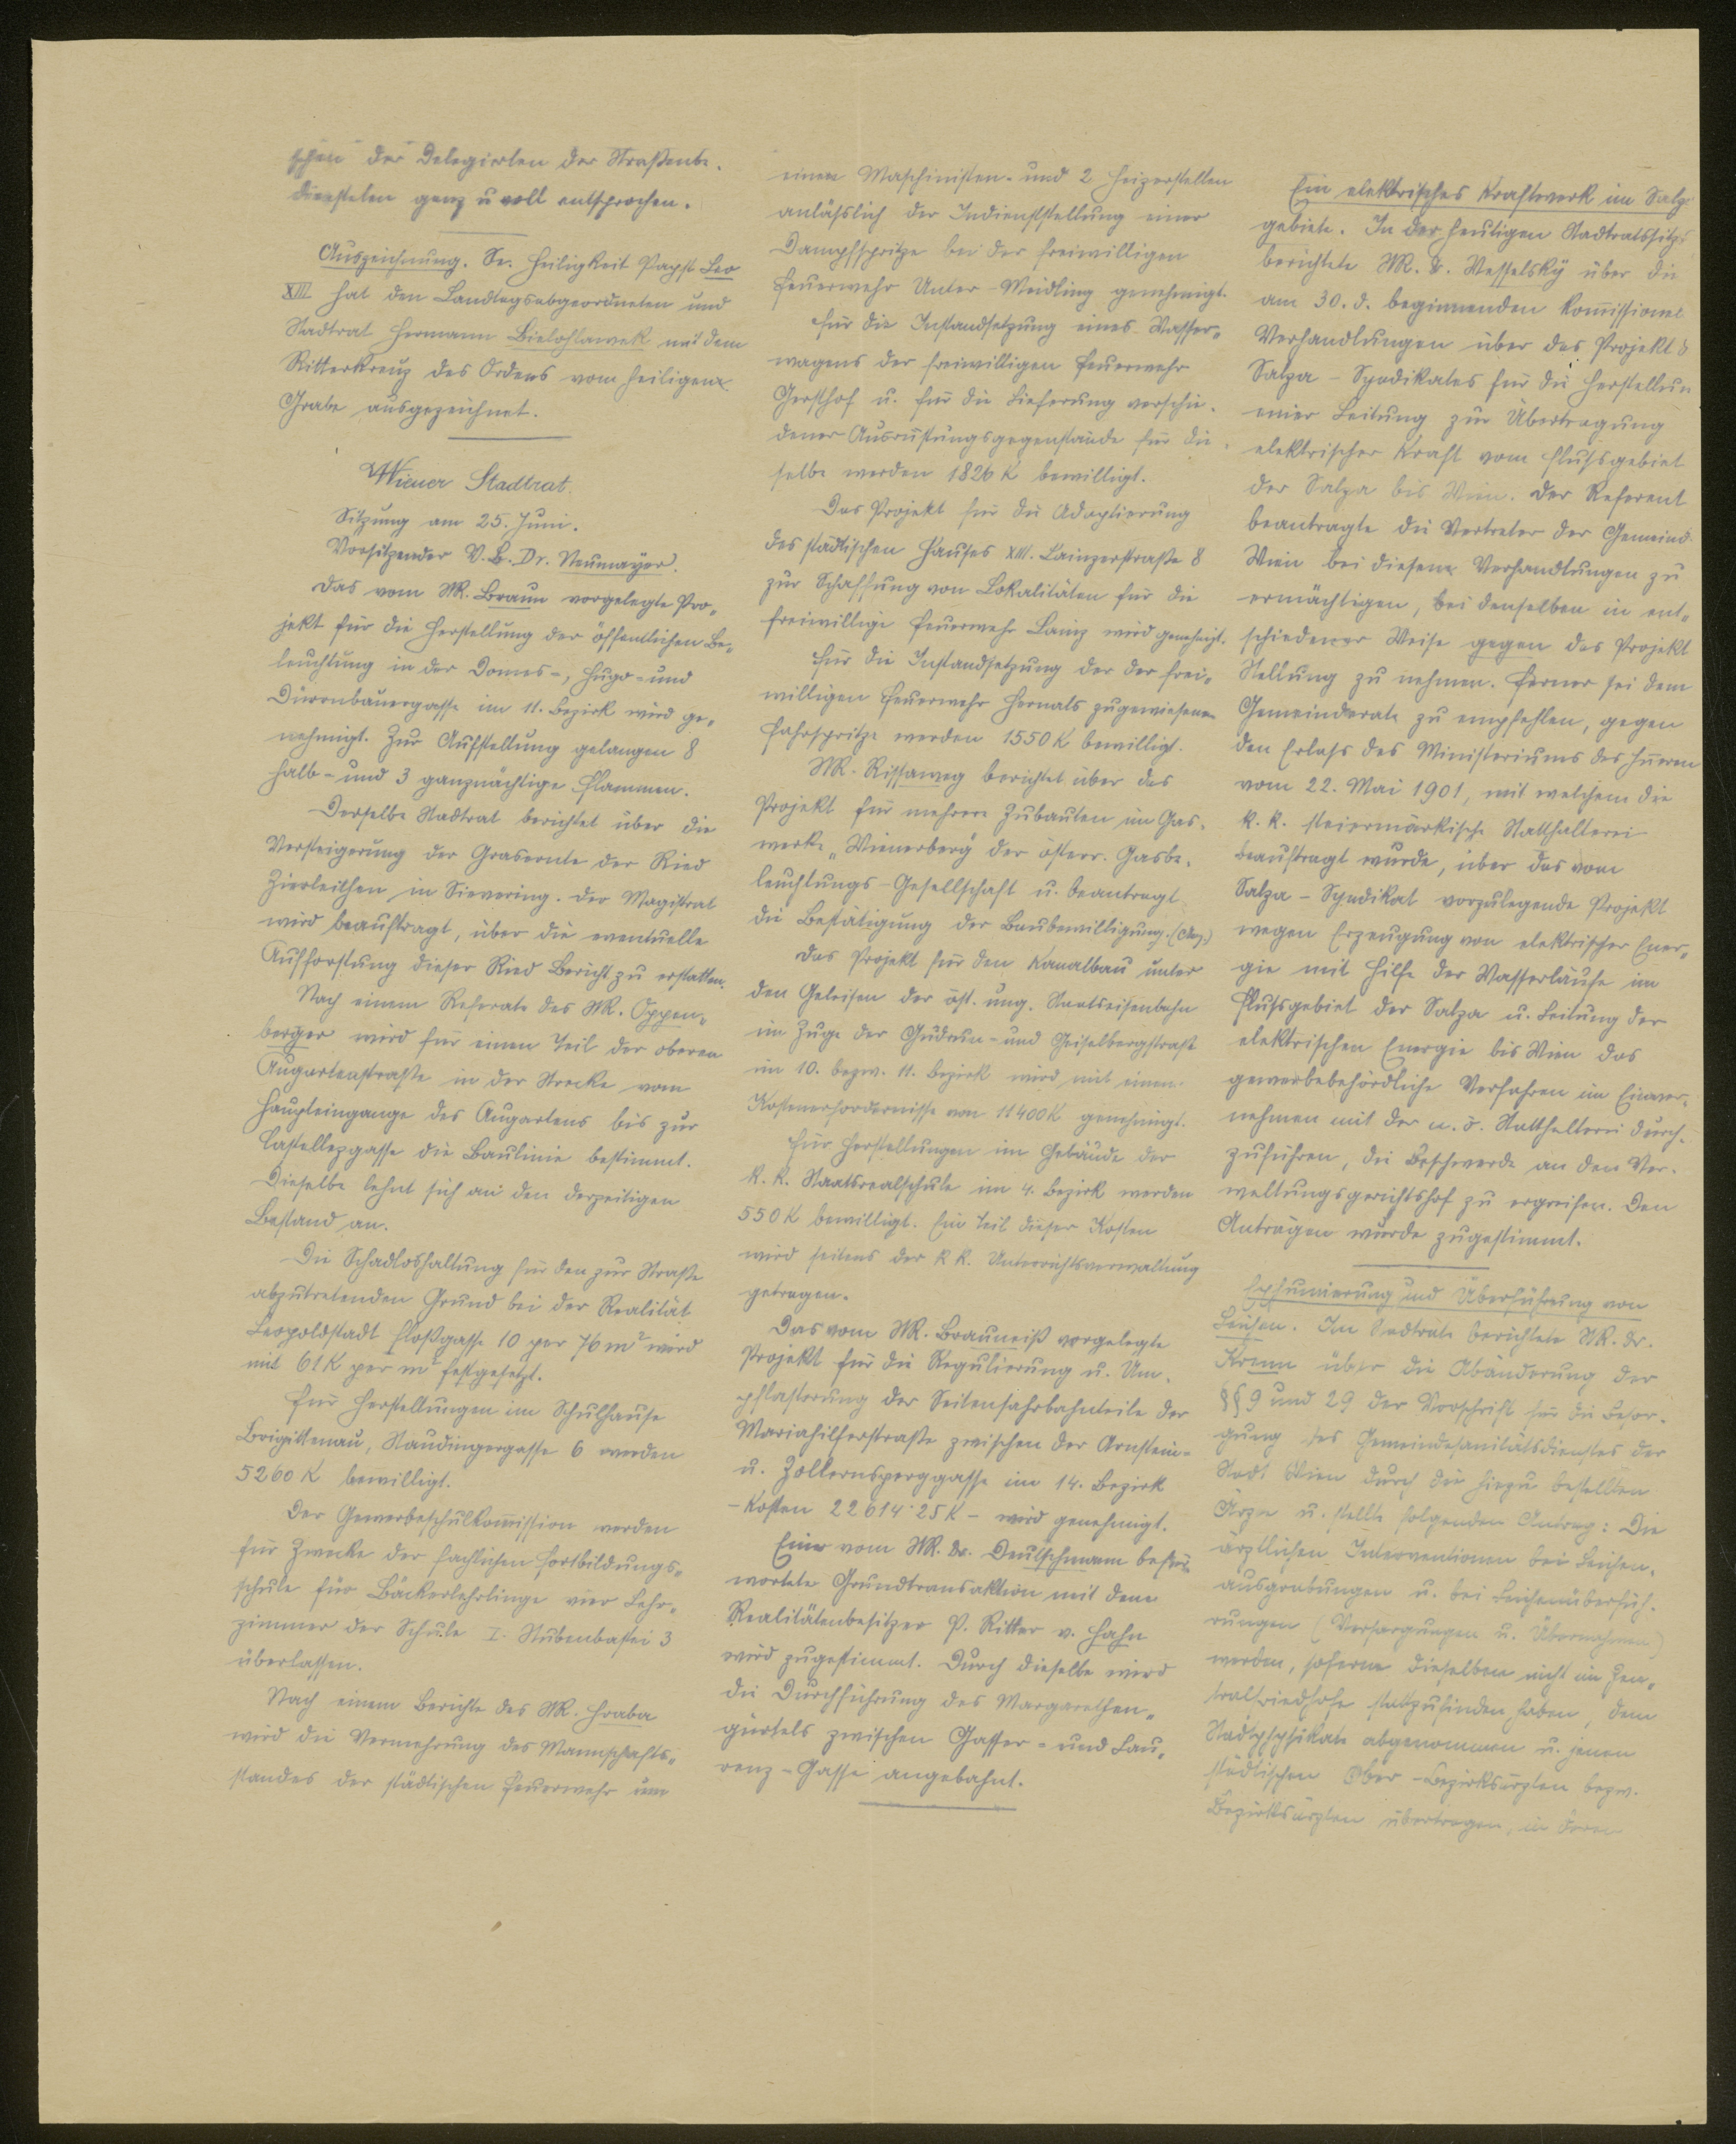 schen der Delegierten der Straßenbe-
diensteten ganz u voll entsprochen.
Auszeichnung. Se. Heiligkeit Papst Leo
XIII hat den Landtagsabgeordneten und
Stadtrat Hermann Bielohlawek mit dem
Ritterkreuz des Ordens vom heiligen
Grabe ausgezeichnet.
Wiener Stadtrat.
Sitzung am 25. Juni.
Vorsitzender V.B. Dr. Neumayer.
Das vom StR. Braun vorgelegte Pro-
jekt für die Herstellung der öffentlichen Be-
leuchtung in der Domes-, Hugo- und
Dürrnbauergasse im 11. Bezirk wird ge-
nehmigt. Zur Aufstellung gelangen 8
halb- und 3 ganznächtige Flammen.
Derselbe Stadtrat berichtet über die
Versteigerung der Grasernte der Ried
Zierleithen in Sievering. Der Magistrat
wird beauftragt, über die eventuelle
Aufforstung dieser Ried Bericht zu erstatten.
Nach einem Referate des StR. Oppen-
berger wird für einen Teil der oberen
Augartenstraße in der Strecke vom
Haupteingange des Augartens bis zur
Castellezgasse die Baulinie bestimmt.
Dieselbe lehnt sich an den derzeitigen
Bestand an.
Die Schadloshaltung für den zur Straße
abzutretenden Grund bei der Realität
Leopoldstadt Floßgasse 10 per 76 m² wird
mit 61 K per m² festgesetzt.
Für Herstellungen im Schulhause
Brigittenau, Staudingergasse 6 werden
5260 K bewilligt.
Der Gewerbeschulkom̅ission werden
für Zwecke der fachlichen Fortbildungs-
schule für Bäckerlehrlinge vier Lehr-
zimmer der Schule I. Stubenbastei 3
überlassen.
Nach einem Berichte des StR. Hraba
wird die Vermehrung des Mannschafts-
standes der städtischen Feuerwehr um
einen Maschinisten- und 2 Heizerstellen
anläßlich der Indienststellung einer
Dampfspritze bei der freiwilligen
Feuerwehr Unter-Meidling genehmigt.
Für die Instandsetzung eines Wasser-
wagens der freiwilligen Feuerwehr
Gersthof u. für die Lieferung verschie-
dener Ausrüstungsgegenstände für die-
selbe werden 1826 K bewilligt.
Das Projekt für die Adaptierung
des städtischen Hauses XIII. Lainzerstraße 8
zur Schaffung von Lokalitäten für die
freiwillige Feuerwehr Lainz wird genehmigt.
Für die Instandsetzung der der frei-
willigen Feuerwehr Hernals zugewiesenen
Fahrspritze werden 1550 K bewilligt.
StR. Rissaweg berichtet über das
Projekt für mehrere Zubauten im Gas-
werke „Wienerberg" der österr. Gasbe-
leuchtungs-Gesellschaft u. beantragt
die Bestätigung der Baubewilligung. (Ang.)
Das Projekt für den Kanalbau unter
den Geleisen der öst. ung. Staatseisenbahn
im Zuge der Gudrun- und Geiselbergstraße
im 10. bezw. 11. Bezirk wird mit einem
Kostenerfordernisse von 11400 K genehmigt.
Für Herstellungen im Gebäude der
k. k. Staatsrealschule im 4. Bezirk werden
550 K bewilligt. Ein Teil dieser Kosten
wird seitens der k k. Unterrichtsverwaltung
getragen.
Das vom StR. Brauneiß vorgelegte
Projekt für die Regulierung u. Um-
pflasterung der Seitenfahrbahnteile der
Mariahilferstraße zwischen der Arnstein-
u. Zollernsperggasse im 14. Bezirk
- Kosten 22614·25 K - wird genehmigt.
Einer vom StR. Dr. Deutschmann befür-
worteten Grundtransaktion mit dem
Realitätenbesitzer P. Ritter v. Hahn
wird zugestimmt. Durch dieselbe wird
die Durchführung des Margarethen-
gürtels zwischen Gasser- und Lau-
renz-Gasse angebahnt.
Ein elektrisches Kraftwerk im Salza-
gebiete. In der heutigen Stadtratssitz
berichtete StR. Dr. Wesselsky über die
am 30. d. beginnenden kom̅issionel
Verhandlungen über das Projekt d
Salza-Syndikates für die Herstellun
einer Leitung zur Übertragung
elektrischer Kraft vom Flußgebiet
der Salza bis Wien. Der Referent
beantragte die Vertreter der Gemeinde
Wien bei diesen Verhandlungen zu
ermächtigen, bei denselben in ent-
schiedener Weise gegen das Projekt
Stellung zu nehmen. Ferner sei dem
Gemeinderate zu empfehlen, gegen
den Erlaß des Ministeriums des Innern
vom 22. Mai 1901, mit welchem die
k. k. steiermärkische Statthalterei
beauftragt wurde, über das vom
Salza-Syndikat vorzulegende Projekt
wegen Erzeugung von elektrischer Ener-
gie mit Hilfe der Wasserläufe im
Flußgebiet der Salza u. Leitung der
elektrischen Energie bis Wien das
gewerbebehördliche Verfahren im Einver-
nehmen mit der n. ö. Statthalterei durch-
zuführen, die Beschwerde an den Ver-
waltungsgerichtshof zu ergreifen. Den
Anträgen wurde zugestimmt.
Exhumierung und Überführung von
Leichen. Im Stadtrate berichtete StR. Dr.
Krenn über die Abänderung der
§§ 9 und 29 der Vorschrift für die Besor-
gung des Gemeindesanitätsdienstes der
Stadt Wien durch die hiezu bestellten
Ärzte u. stellte folgenden Antrag: Die
ärztlichen Interventionen bei Leichen-
ausgrabungen u. bei Leichenüberfüh-
rungen (Versorgungen u. Übernahmen)
werden, soferne dieselben nicht im Zen-
tralfriedhofe stattzufinden haben, dem
Stadtphysikate abgenommen u. jenen
städtischen Ober-Bezirksärzten bezw.
Bezirksärzten übertragen, in deren